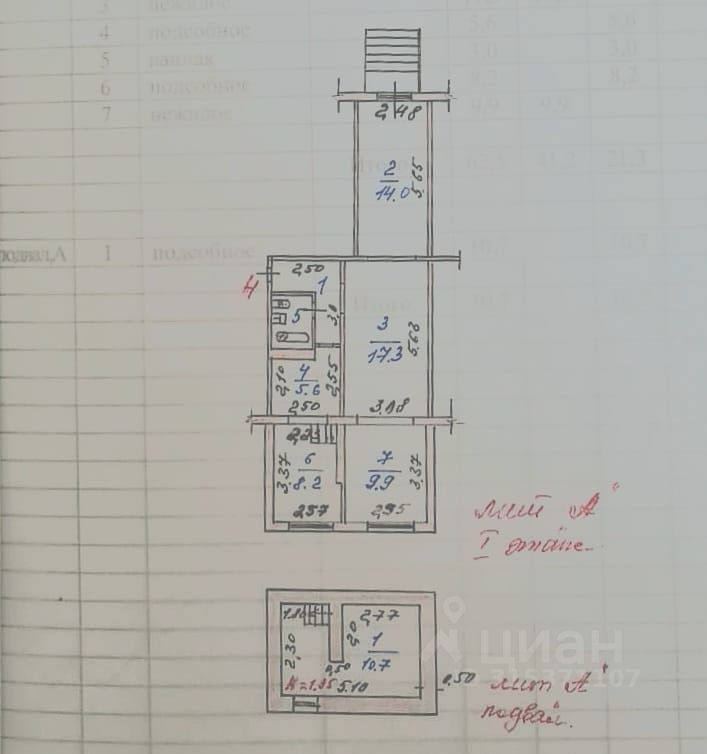 3 нежилое
4 подсобное 5,6 5,6
5 ванная 3,0 3,0
6 подсобное 8,2 8,2
7 нежилое 9,9 9,9
Итого 62,5 41,2 21,3
подвал,А 1 подсобное 10,7 10,7
Итого 10,7
2,48
2
14.0
5,65
2,50
4
1
5
3,0
3
17.3
5,68
4
5.6
2,10
2,55
2,50
3,08
2,23
6
8.2
3,37
2,37
7
9.9
3,37
2,95
лит А"
I этаж.
2,77
2,30
1
10.7
0,50
H=1.95
5.10
0,50
лит А"
подвал.
циан